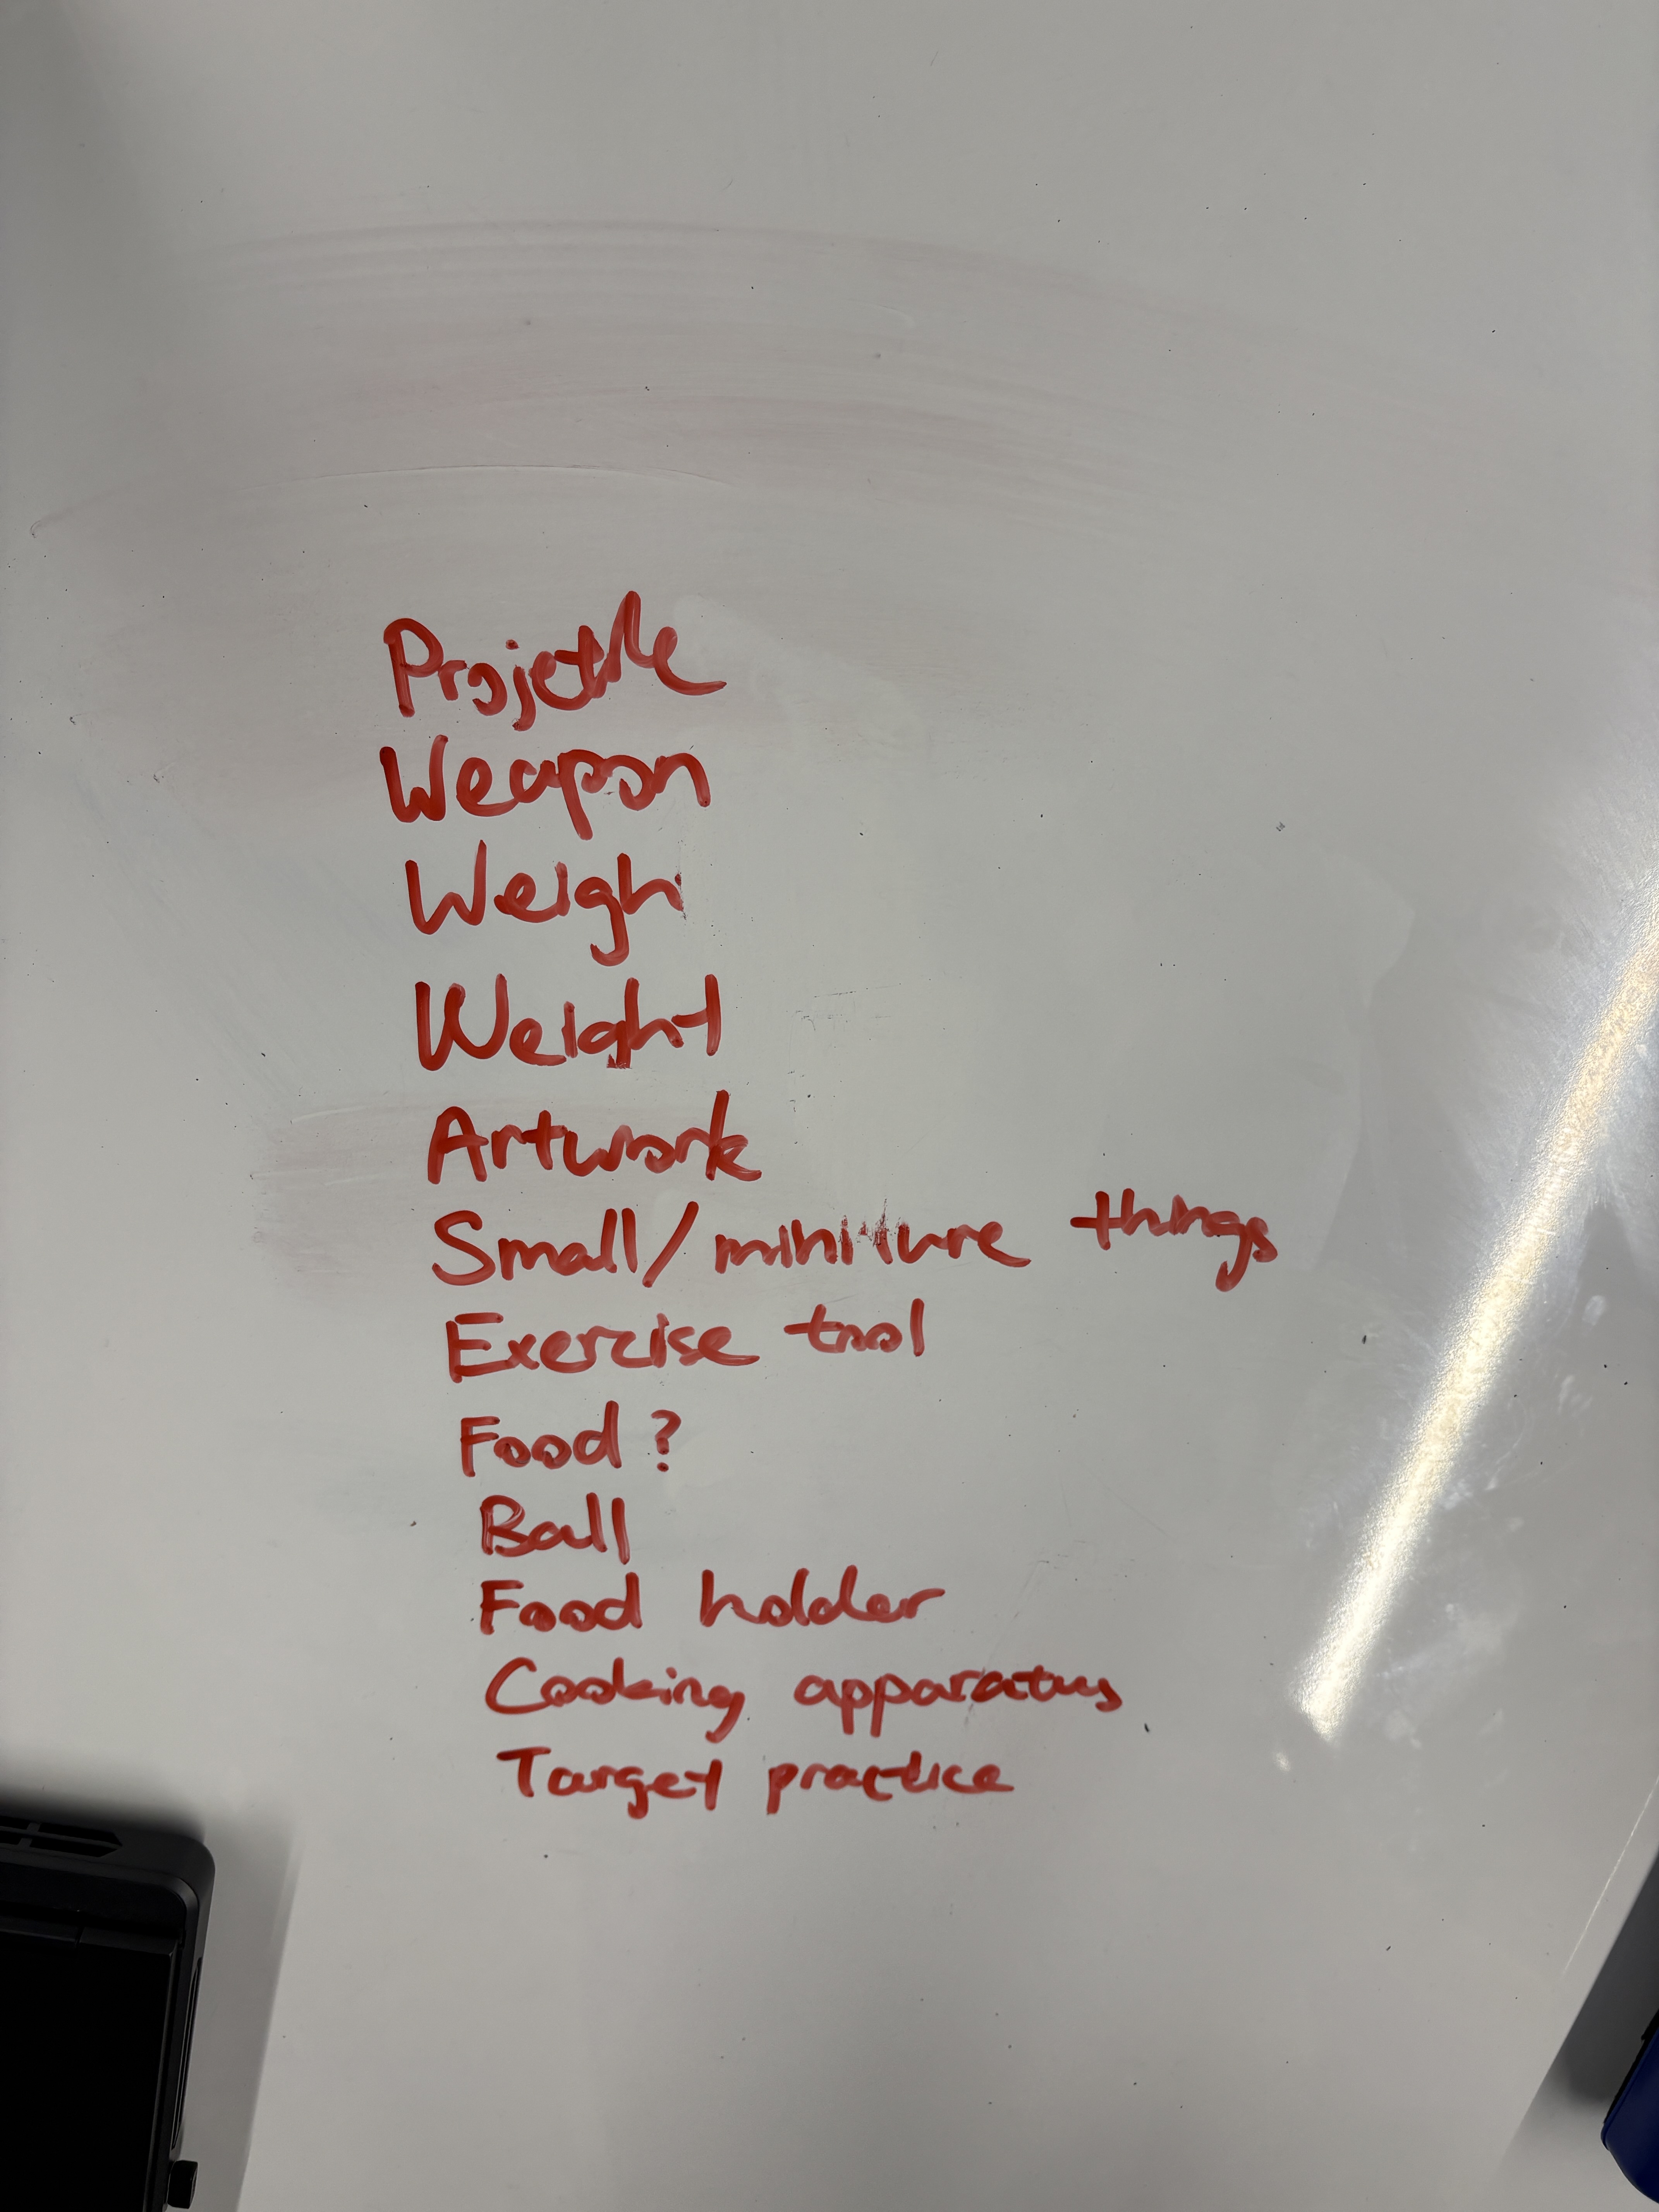 Projetile
Weapon
Weigh
Weight
Artwork
Small/miniture things
Exercise tool
Food?
Ball
Food holder
Cooking apparatus
Target practice